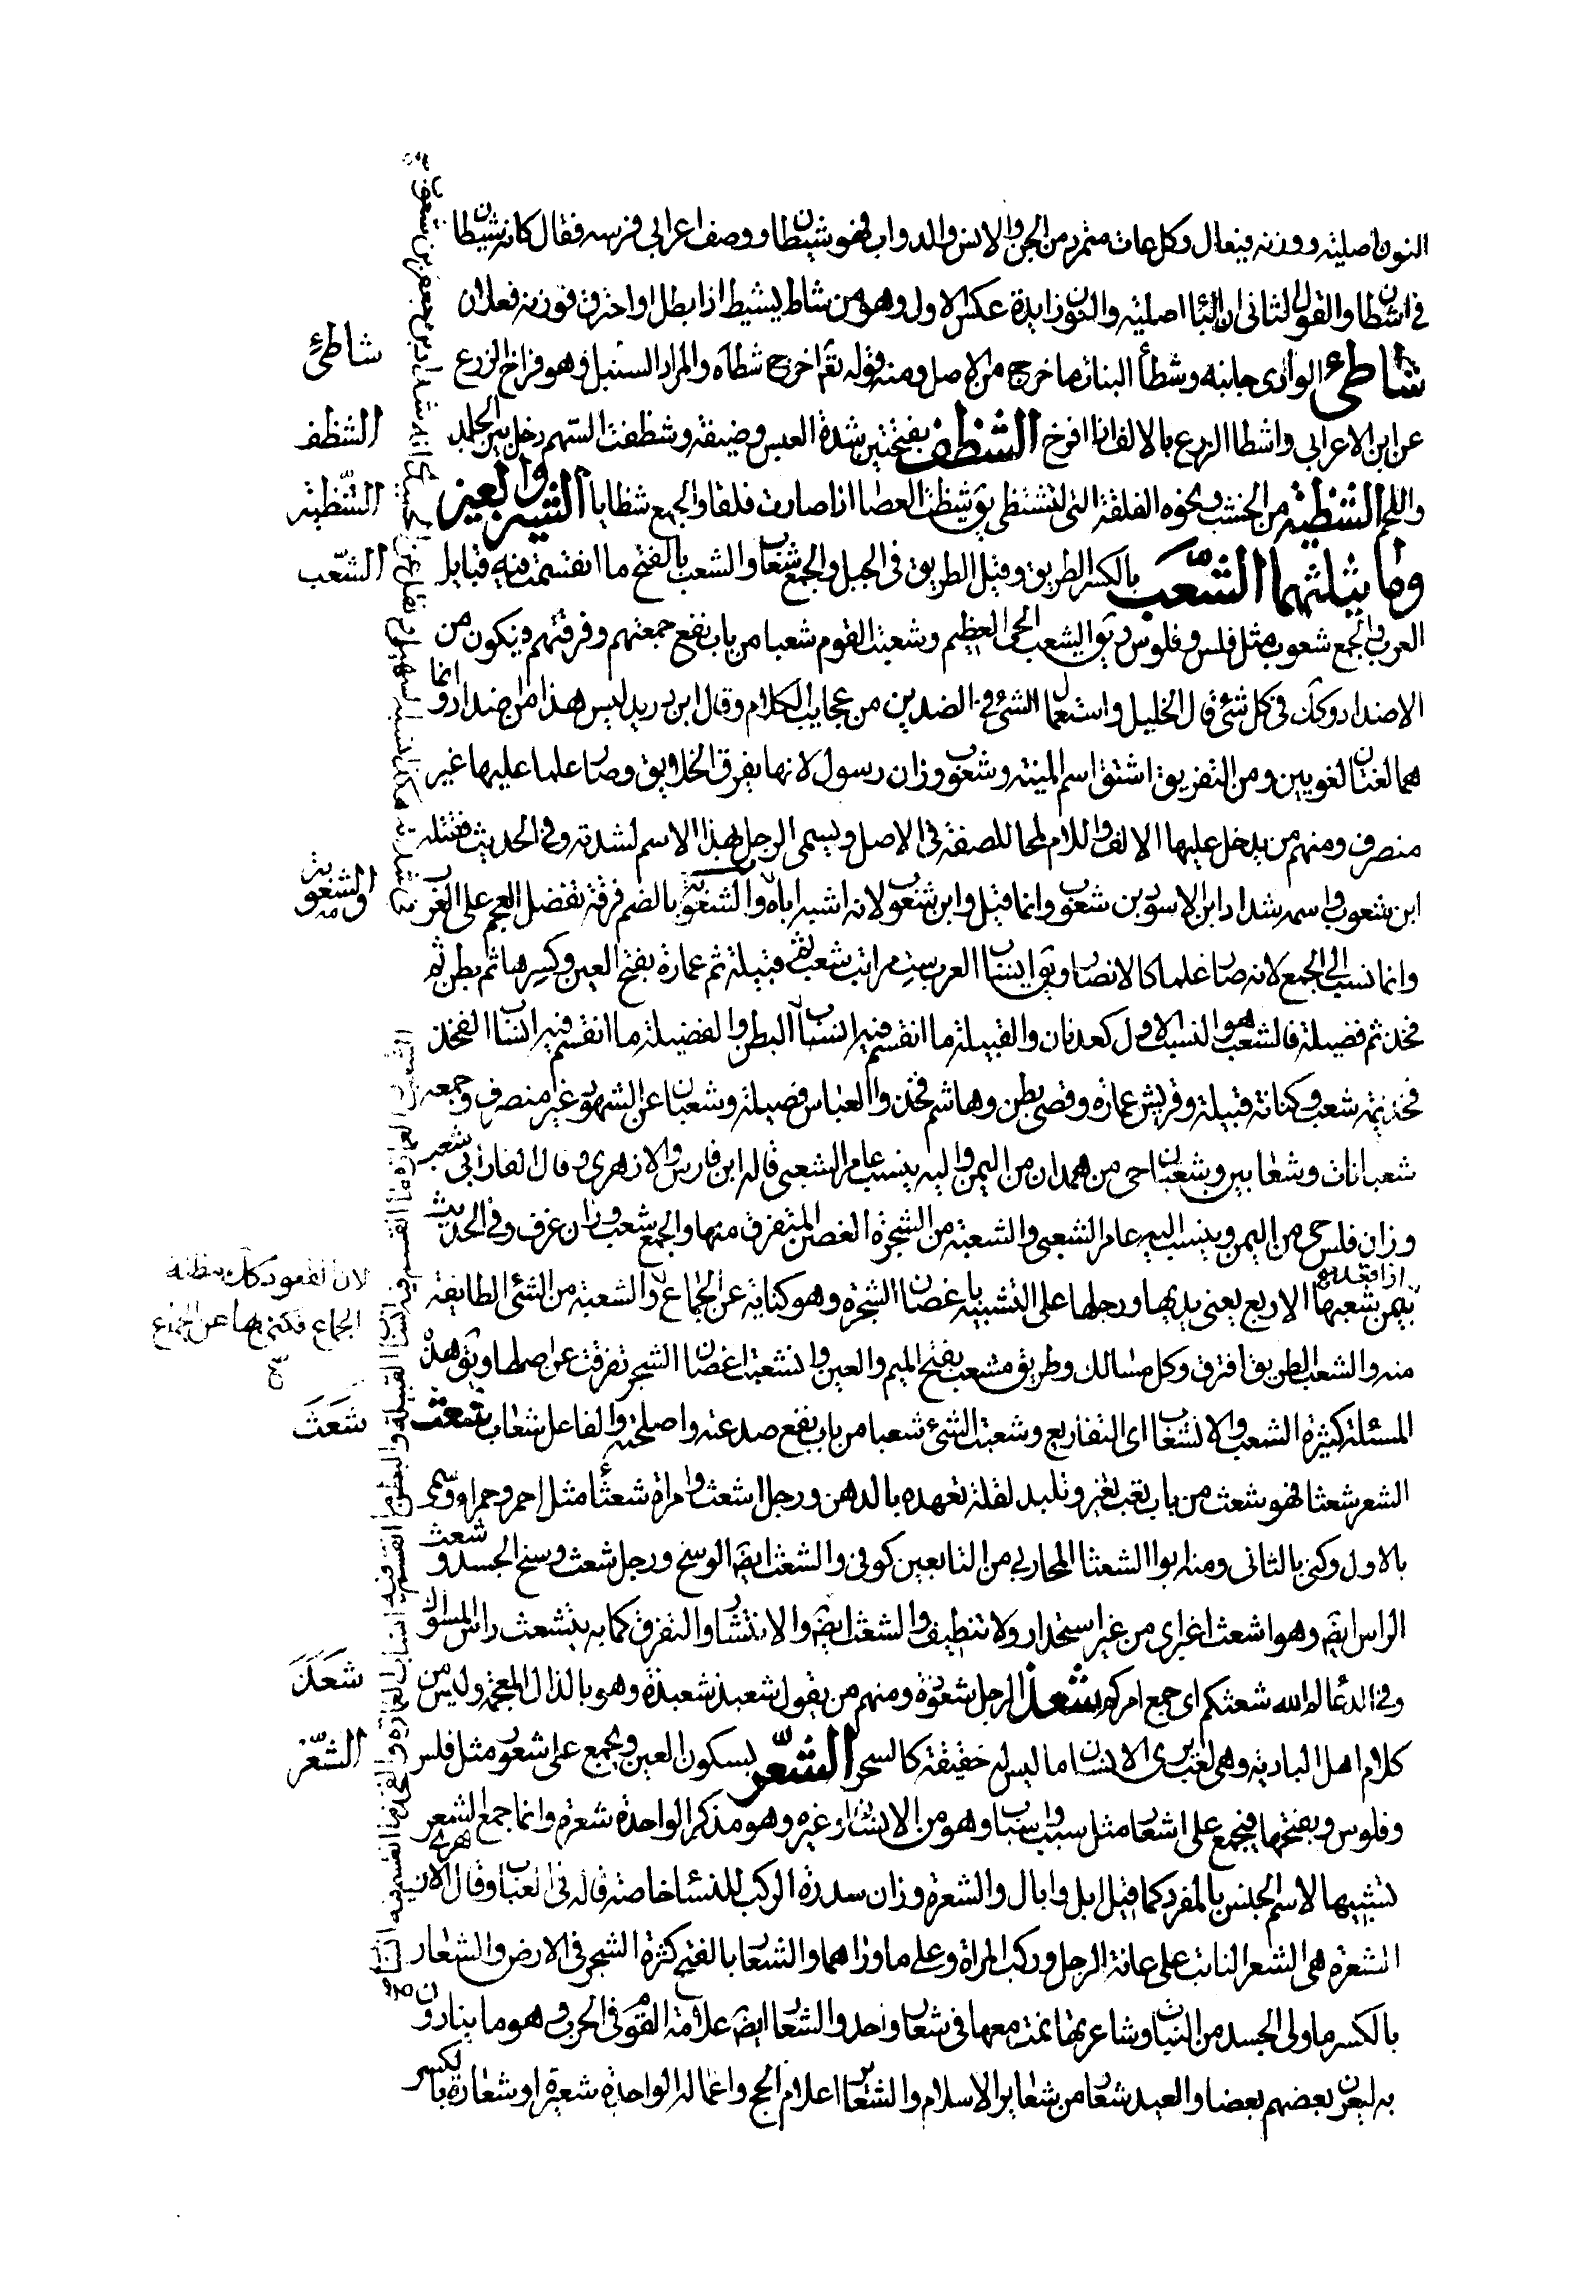 النون اصلية ووزنه فيعال وكل عات متمرد من الجن والانس والدواب فهو شيطان ووصف اعرابي فرسه فقال كانه شيطان
في اشطان والقول الثاني ان اليا اصلية والنون زايدة عكس الاول وهو من شاط يشيط اذا بطل او احترق فوزنه فعلان
شاطئ الوادي جانبه وشطأ النبات ما خرج من الاصل ومنه قوله تع اخرج شطأه والمراد السنبل وهو فراخ الزرع
عن ابن الاعرابي واشطا الزرع بالالف اذا افرخ الشظف بفتحتين شدة العيس وضيقه وشظفت السهم دخل بين الجلد
واللحم الشظية من الخشب ونحوه الفلقة التي تتشظى يق تشظت العصا اذا صارت فلقا والجمع شظايا الشين والعين
وما يثلثهما الشعب بالكسر الطريق وقيل الطريق في الجبل والجمع شعاب والشعب بالفتح ما انقسمت فيه قبايل
العرب والجمع شعوب مثل فلس وفلوس ويق الشعب الحي العظيم وشعبت القوم شعبا من باب نفع جمعتهم وفرقتهم فيكون من
الاضداد وكك في كل شئ قال الخليل واستعمال الشئ في الضدين من عجايب الكلام وقال ابن دريد ليس هذا من اضداد وانما
هما لغتان لغويين ومن التفريق اشتق اسم المنية وشعوب وزان رسول لانها يفرق الخلايق وصار علما عليها غير
منصرف ومنهم من يدخل عليها الالف واللام لمحا للصفة في الاصل ويسمى الرجل بهذا الاسم لشدته وفي الحديث فقتله
ابن شعوب واسمه شداد ابن الاسود بن شعوب وانما قيل وابن شعوب لانه اشبه اباه والشعوبية بالضم فرقة تفضل العجم على العرب
وانما نسب الى الجمع لانه صار علما كالانصار ويق انساب العرب ست مراتب شعب ثم قبيلة ثم عمارة بفتح العين وكسرها ثم بطن ثم
فخذ ثم فصيلة فالشعب هو النسب الاول كعدنان والقبيلة ما انقسم فيه انساب البطن والفصيلة ما انقسم فيه انساب الفخذ
فخزيمة شعب وكنانة قبيلة وقريش عمارة وقصي بطن وهاشم فخذ والعباس فصيلة وشعبان عن الشهور غير منصرف وجمعه
شعبانات وشعابين وشعبان حي من همدان من اليمن واليه ينسب عامر الشعبي قاله ابن فارس والازهري وقال الفارابي شعب
وزان فلس حي من اليمن وينسب اليه عامر الشعبي والشعبة من الشجرة الغصن المتفرق منها والجمع شعب وزان غرف وفي الحديث
اذا قعد بين شعبها الاربع يعني يديها ورجلها على التشبيه باغصان الشجرة وهو كناية عن الجماع والشعبة من الشئ الطايفة
منه والشعب الطريق افترق وكل مسالك وطريق مشعب بفتح الميم والعين وانشعبت اغصان الشجر تفرقت عن اصلها ويق هذه
المسئلة كثيرة الشعب والانشعاب اي التفاريع وشعبت الشئ شعبا من باب نفع صدعته واصلحته والفاعل شعاب شعث
الشعر شعثا فهو شعث من باب تعب تغير وتلبد لقلة تعهده بالدهن ورجل اشعث وامراة شعثاء مثل احمر وحمراء وسمي
بالاول وكني بالثاني ومنه ابوا الشعثا المحاربي من التابعين كوفي والشعث ايضا الوسخ ورجل شعث وسخ الجسد وشعث
الراس ايضا وهو اشعث اغبر اي من غير استحداد ولا تنظيف والشعث ايضا والانتشار والتفرق كما به يتشعث راس المسواك
وفي الدعا لم الله شعثكم اي جمع امركم شعذ الرجل شعوذة ومنهم من يقول شعبذ شعبذة وهو بالذال المعجمة وليس من
كلام اهل البادية وهي لعب يرى الانسان ما ليس له حقيقة كالسحر الشعر بسكون العين ويجمع على شعور مثل فلس
وفلوس وبفتحها فيجمع على اشعار مثل سبب واسباب وهو من الانسان وغيره وهو مذكر الواحدة شعرة وانما جمع الشعر
تشبيها لاسم الجنس بالمفرد كما قيل ابل وابال والشعرة وزان سدرة الركب للنسا خاصة قاله في العباب وقال الازهري
الشعرة هي الشعر النابت على عانة الرجل وركب المراة وعلى ما وراهما والشعار بالفتح كثرة الشجر في الارض والشعار
بالكسر ما ولي الجسد من الثياب وشاعرتها نمت معها في شعار واحد والشعار ايضا علامة القوم في الحرب وهو ما ينادون
به ليعرف بعضهم بعضا والعيد شعار من شعاير الاسلام والشعاير اعلام الحج واعماله الواحدة شعيرة او شعارة بالكسر
شاطئ
الشظف
الشظية
الشعب
والشعوبية
لان القعود كك مظنة
الجماع فكني بها عن الجماع
شعث
شعذ
الشعر